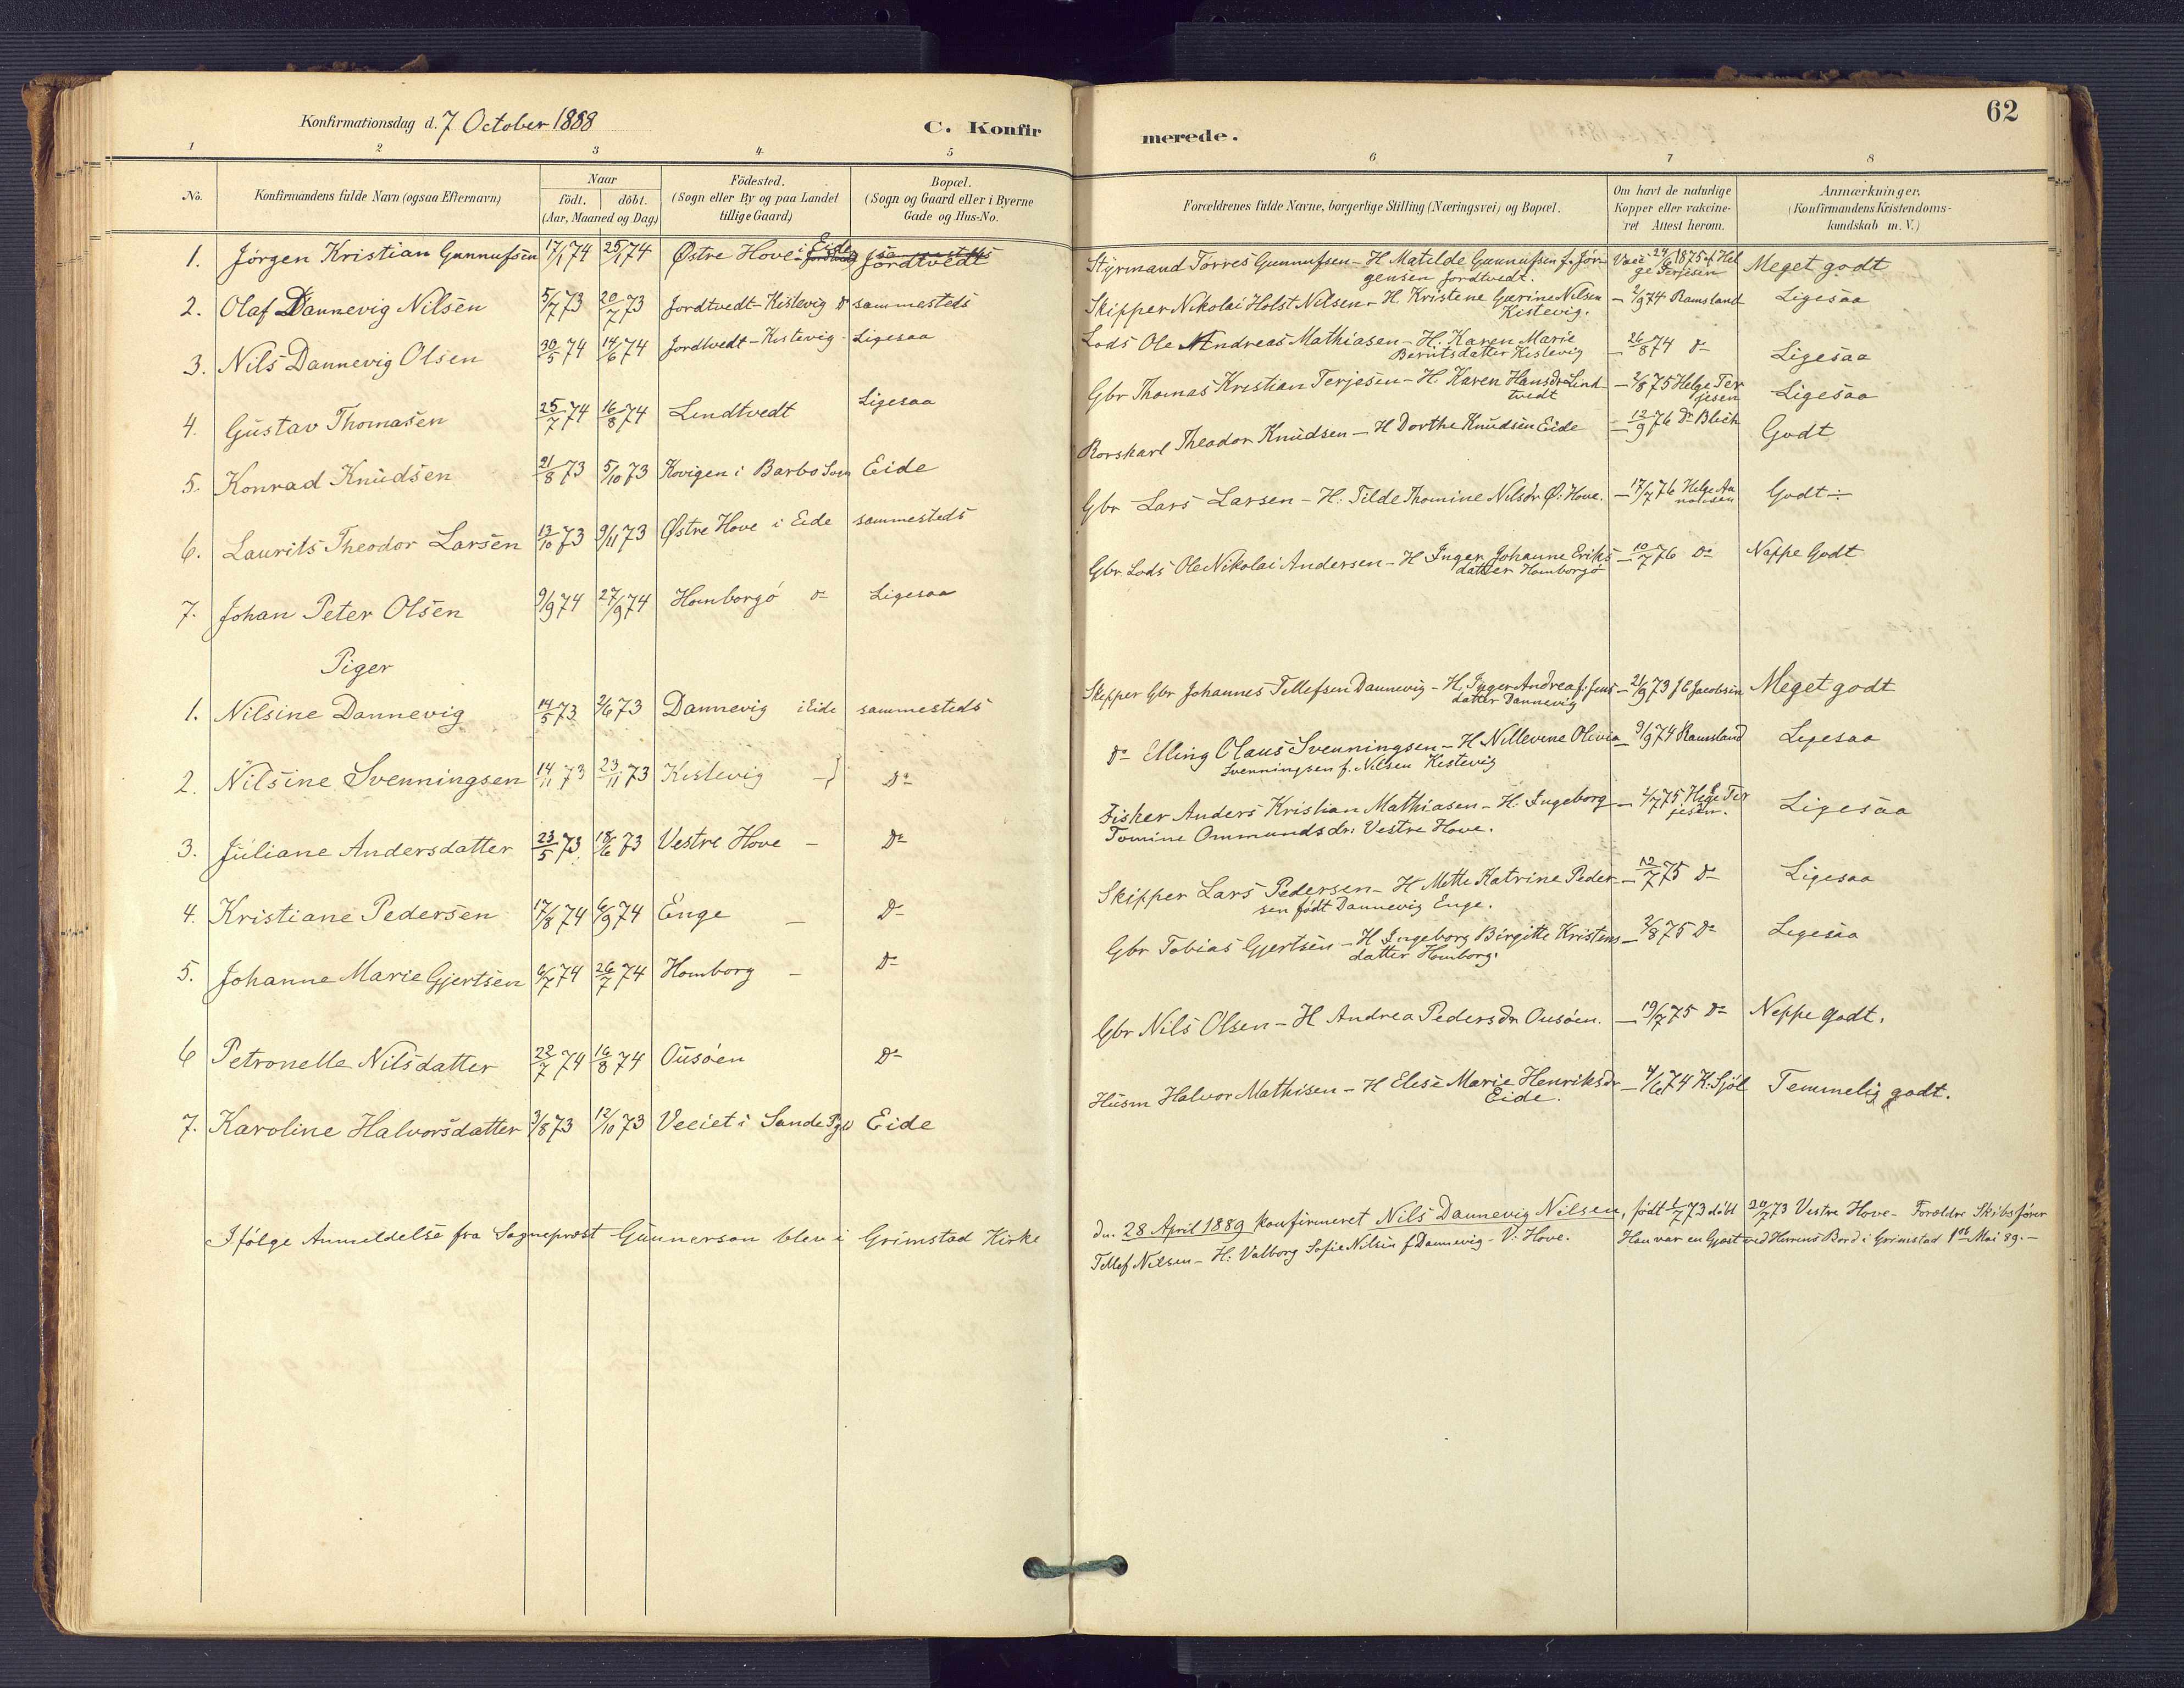 Konfirmationsdag d. 7 October 1888
C. Konfir
merede.
62
1 2 3 4 5 6 7 8
No. Konfirmandens fulde Navn (ogsaa Efternavn) Naar födt. döbt. (Aar, Maaned og Dag) Födested. (Sogn eller By og paa Landet tillige Gaard) Bopæl. (Sogn og Gaard eller i Byerne Gade og Hus-No.
Forældrenes fulde Navne, borgerlige Stilling (Næringsvei) og Bopæl. Om havt de naturlige Kopper eller vakcine- ret Attest herom. Anmærkninger. (Konfirmandens Kristendoms- kundskab m. V.)
1. Jörgen Kristian Gunnufsen 17/1 74 25/1 74 Østre Hove i Eide Jordtvedt sammesteds Jordtvedt
Styrmand Törres Gunnufsen - H Matilde Gunnufsen f. Jörn Vacc 24/6 1875 af Hel Meget godt
gensen Jordtvedt. ge Terjesen
2. Olaf Dannevig Nilsen 5/7 73 20/7 73 Jordtvedt-Kistevig Do sammesteds
Skipper Nikolai Holst Nilsen - H. Kristene Gurine Nilsen - 2/9 74 Ramsland Ligesaa
Kistevig.
3. Nils Dannevig Olsen 30/5 74 14/6 74 Jordtvedt-Kistevig - Ligesaa
Lods Ole Andreas Mathiasen - H. Karen Marie - 26/8 74 Do Ligesaa
Berntsdatter Kistevig
4. Gustav Thomasen 25/7 74 16/8 74 Lindtvedt Ligesaa
Gbr Thomas Kristian Terjesen - H. Karen Hansdr Lind - 2/8 75 Helge Ter Ligesaa
tvedt jesen
5. Konrad Knudsen 21/8 73 5/10 73 Kovigen i Barbo Sogn Eide
Rorskarl Theodor Knudsen - H Dorthe Knudsen Eide - 12/9 76 Dr Blich Godt
6. Laurits Theodor Larsen 13/10 73 9/11 73 Østre Hove i Eide sammesteds
Gbr Lars Larsen - H. Tilde Thomine Nilsdr Ø. Hove. - 17/7 76 Helge Godt ÷
7. Johan Peter Olsen 9/9 74 27/9 74 Homborgö Do Ligesaa
Gbr. Lods Ole Nikolai Andersen - H Inger Johanne Eriks - 10/7 76 Do Neppe Godt
datter Homborgö
Piger
1. Nilsine Dannevig 14/5 73 2/6 73 Dannevig i Eide sammesteds
Skipper Gbr Johannes Tellefsen Dannevig - H. Inger Andrea f. Jens - 21/9 73 J C Jacobsen Meget godt
datter Dannevig
2. Nilsine Svenningsen 14/11 73 23/11 73 Kistevig - Do
Do Elling Claus Svenningsen - H Nillevine Olivia - 9/9 74 Ramsland Ligesaa
Svenningsen f. Nilsen Kistevig
3. Juliane Andersdatter 23/5 73 18/6 73 Vestre Hove - Do
Fisker Anders Kristian Mathiasen - H. Ingeborg - 2/7 75 Helge Ter Ligesaa
Tomine Ommundsdr: Vestre Hove. jesen.
4. Kristiane Pedersen 17/8 74 6/9 74 Enge - Do
Skipper Lars Pedersen - H Mette Katrine Peder - 12/7 75 Do Ligesaa
sen födt Dannevig Enge.
5. Johanne Marie Gjertsen 6/7 74 26/7 74 Homborg - Do
Gbr Tobias Gjertsen - H Ingeborg Birgitte Kristens - 2/8 75 Do Ligesaa
datter Homborg.
6 Petronelle Nilsdatter 22/7 74 16/8 74 Ousöen Do
Gbr Nils Olsen - H Andrea Pedersdr Ousöen. - 19/7 75 Do Neppe godt.
7. Karoline Halvorsdatter 3/8 73 12/10 73 i Sande Pgd Eide
Husm Halvor Mathisen - H Elise Marie Henriksdr - 4/6 74 K. Sjöl Temmelig godt.
Eide.
Ifölge Anmeldelse fra Sognepræst Gunnerson blev i Grimstad Kirke
dn. 28 April 1889 konfirmeret Nils Dannevig Nilsen, födt 1/7 73 döbt 20/7 73 Vestre Hove - Forældre Skibsförer
Tellef Nilsen - H: Valborg Sofie Nilsen f Dannevig - V. Hove. Han var en Gjæst ved Herrens Bord i Grimstad 1ste Mai 89. -